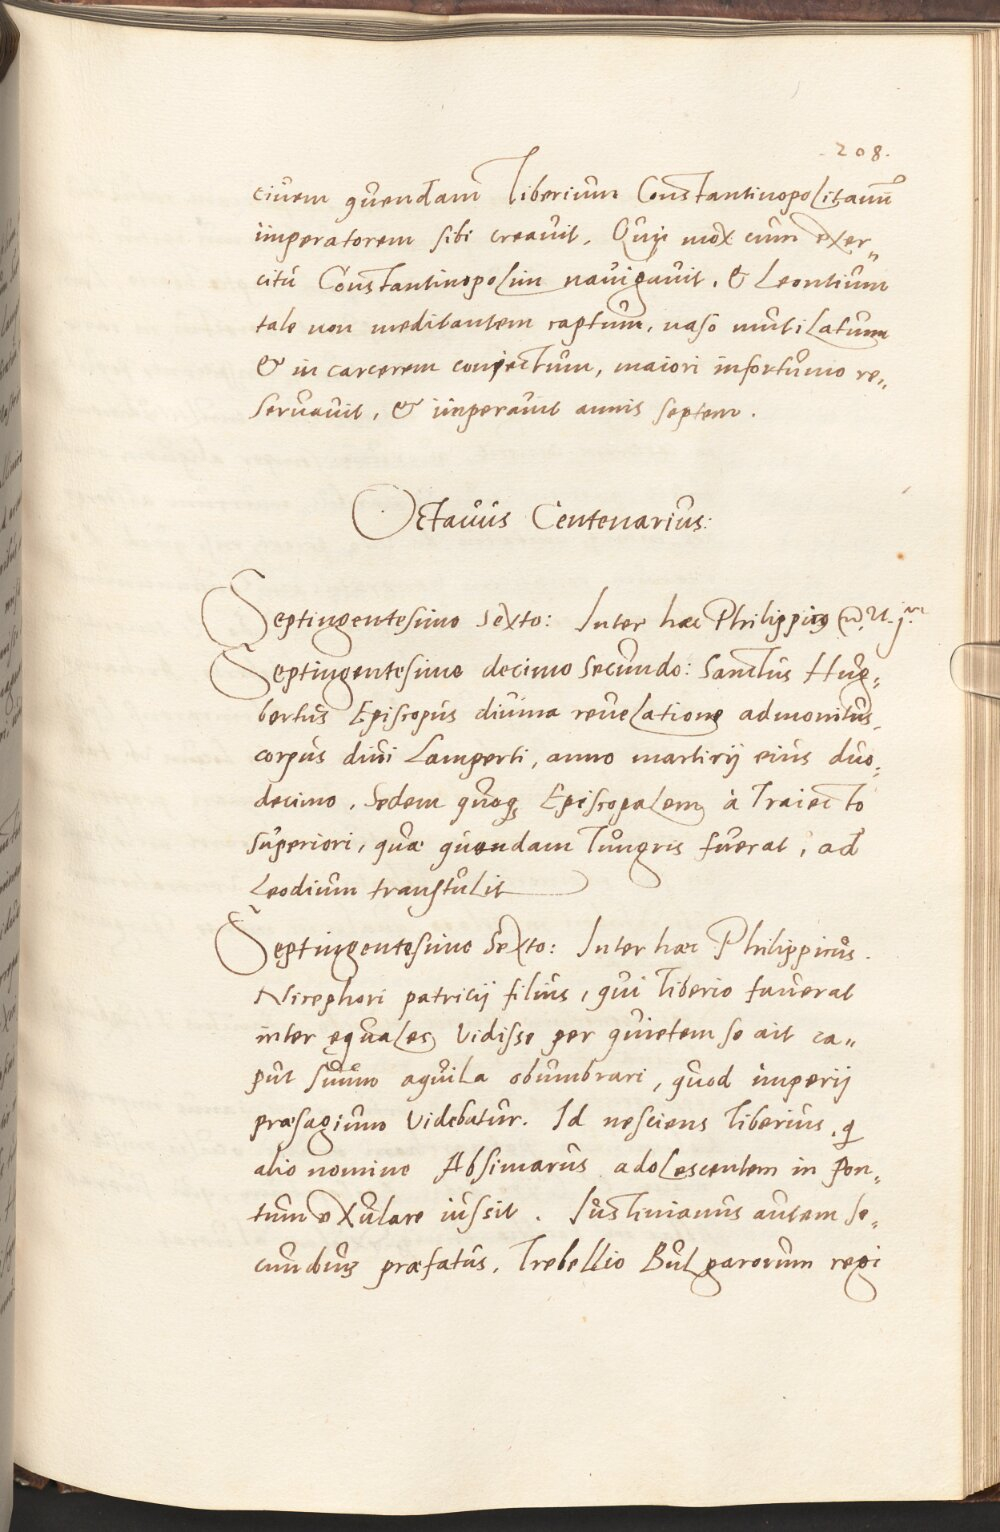 208.
ciuem quendam Tiberium Constantinopolitanū
imperatorem sibi creauit. Qui mox cum exer„
citu Constantinopolim nauigauit, & Leontium
tale non meditantem captum, naso mutilatum
& in carcerem coniectum, maiori infortunio re„
seruauit, & imperauit annis septem.
Octauus Centenarius:
Septingentesimo sexto: Inter hæc Philippicus
Septingentesimo decimo secundo: Sanctus Hug„
bertus Episcopus diuina reuelatione admonitus,
corpus diui Lamperti, anno martirij eius duo„
decimo, Sedem quoq; Episcopalem à Traiecto
superiori, quæ quondam Tungris fuerat, ad
Leodium transtulit
Septingentesimo Sexto: Inter hæc Philippicus.
Nicephori patricij filius, qui Tiberio fauerat
inter ęquales vidisse per quietem se ait ca„
put suum aquila obumbrari, quod imperij
præsagium videbatur. Id nesciens Tiberius, q
alio nomine Absimarus adolescentem in Pon„
tum exulare iussit. Iustinianus autem se„
cundus præfatus, Trebellio Bulgarorum regi